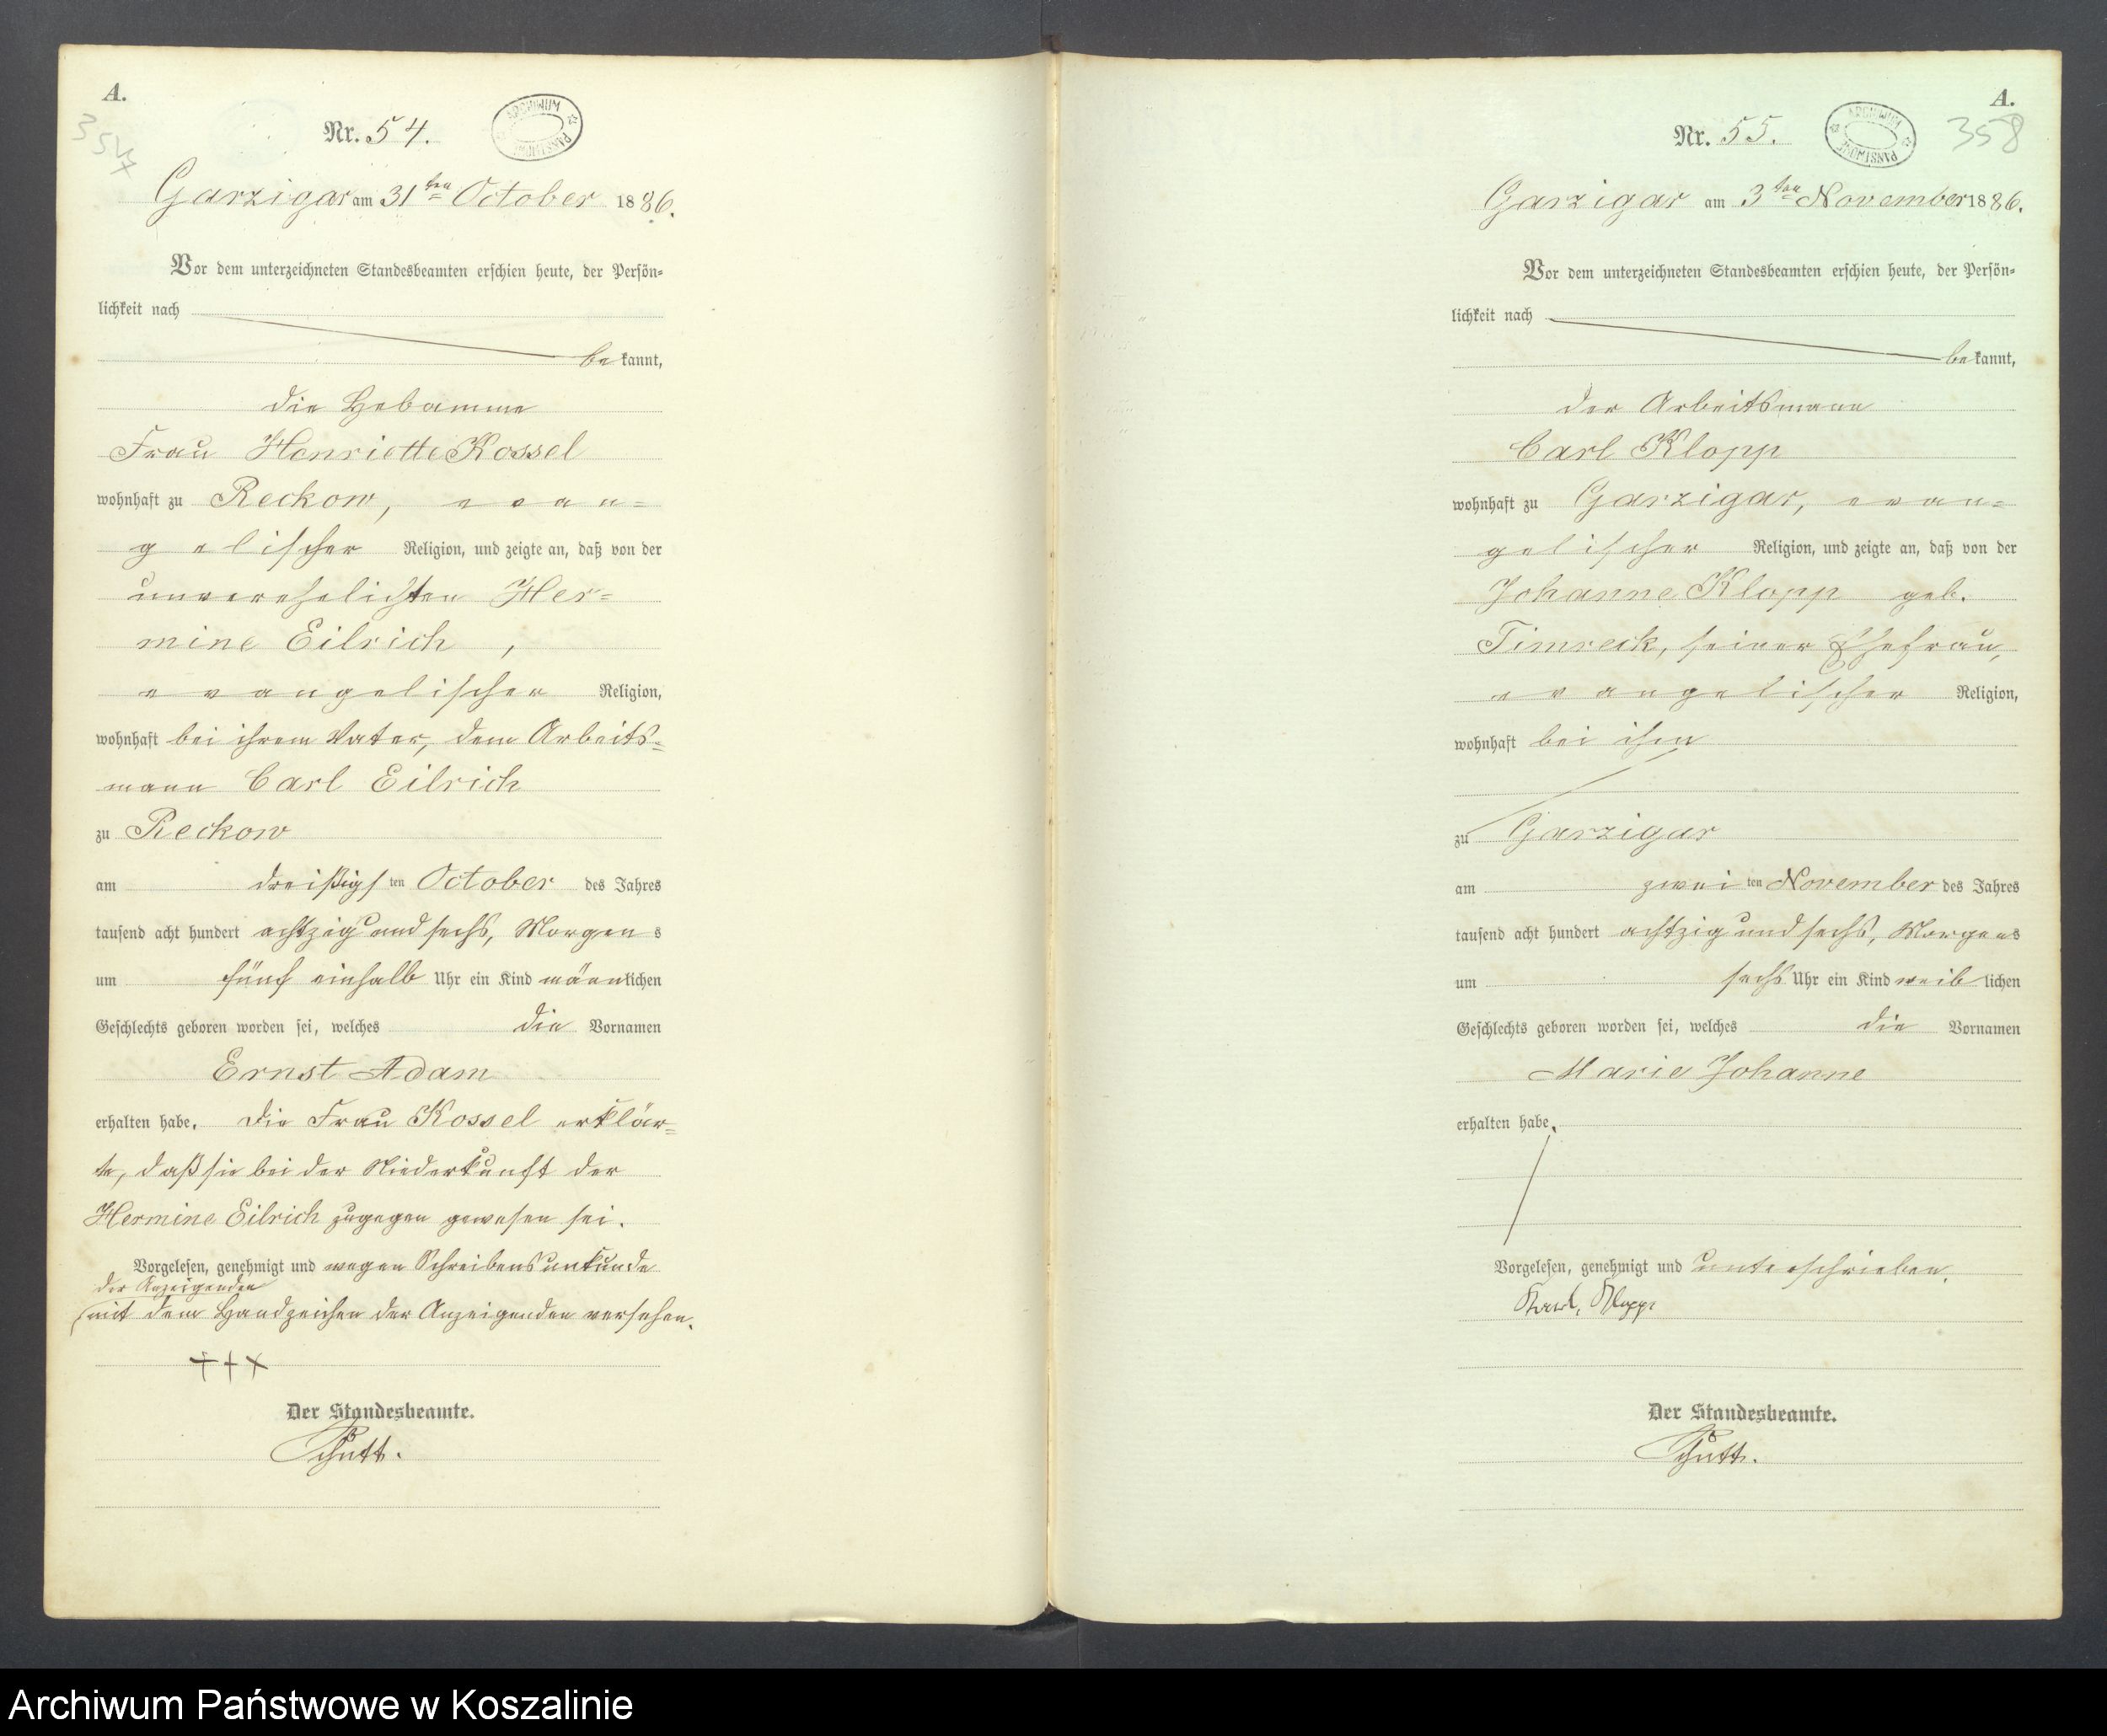 A.
354
Nr. 54.
ARCHIWUM PAŃSTWOWE
Garzigar am 31ten October 1886.
Vor dem unterzeichneten Standesbeamten erschien heute, der Persön-
lichkeit nach
bekannt,
die Hebamme
Frau Henriette Kossel
wohnhaft zu Reckow, evan-
gelischer Religion, und zeigte an, daß von der
unverehelichten Her-
mine Eilrich,
evangelischer Religion,
wohnhaft bei ihrem Vater, dem Arbeits-
mann Carl Eilrich
zu Reckow
am dreißigsten October des Jahres
tausend acht hundert achtzig und sechs, Morgens
um fünf einhalb Uhr ein Kind männlichen
Geschlechts geboren worden sei, welches die Vornamen
Ernst Adam
erhalten habe. Die Frau Kossel erklär-
te, daß sie bei der Niederkunft der
Hermine Eilrich zugegen gewesen sei.
Vorgelesen, genehmigt und wegen Schreibensunkunde
der Anzeigenden
mit dem Handzeichen der Anzeigenden versehen.
+++
Der Standesbeamte.
Schütt.
A.
358
Nr. 55.
ARCHIWUM PAŃSTWOWE
Garzigar am 3ten November 1886.
Vor dem unterzeichneten Standesbeamten erschien heute, der Persön-
lichkeit nach
bekannt,
der Arbeitsmann
Carl Klopp
wohnhaft zu Garzigar, evan-
gelischer Religion, und zeigte an, daß von der
Johanne Klopp geb.
Timreck, seiner Ehefrau,
evangelischer Religion,
wohnhaft bei ihm
zu Garzigar
am zweiten November des Jahres
tausend acht hundert achtzig und sechs, Morgens
um sechs Uhr ein Kind weiblichen
Geschlechts geboren worden sei, welches die Vornamen
Marie Johanne
erhalten habe.
Vorgelesen, genehmigt und unterschrieben.
Karl, Klopp
Der Standesbeamte.
Schütt.
Archiwum Państwowe w Koszalinie